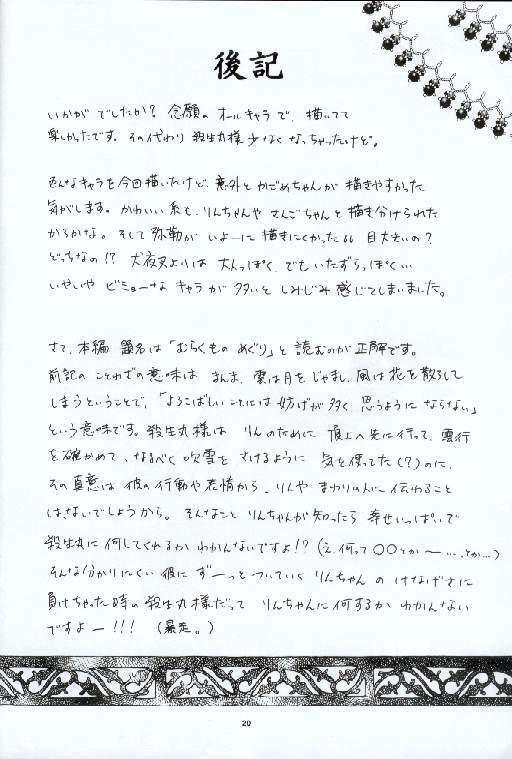 後記
いかがでしたか? 念願のオールキャラで、描いてて
楽しかったです。その代わり殺生丸様少なくなっちゃったけど。
色んなキャラを今回描いたけど、意外とかごめちゃんが描きやすかった
気がします。かわいい系も、りんちゃんやさんごちゃんと描き分けられた
かるかな。そして弥勒がいよーに描きにくかった。目大きいの?
どっちなの!? 犬夜叉よりは大人っぽく、でもいたずらっぽく…
いやいやビミョーなキャラが多いとしみじみ感じてしまいました。
さて、本編題名は「むらくものめぐり」と読むのが正解です。
前記のことわざの意味はまんま、雲は月をじゃまし、風は花を散らして
しまうということで、「よろこばしいことには妨げが多く思うようにならない」
という意味です。殺生丸様はりんのために頂上へ先に行って、雲行
を確かめて、なるべく吹雪をさけるように気を使ってた(?)のに、
その真意は彼の行動や表情から、りんやまわりの人に伝わること
はないでしょうから。そんなことりんちゃんが知ったら幸せいっぱいで
殺生丸に何してくれるかわかんないですよ!?(え、何って〇〇とか〜……とか…)
そんな分かりにくい彼にずーっとついていくりんちゃんのけなげさに
負けちゃった時の殺生丸様だってりんちゃんに何するかわかんない
ですよー!!!(暴走。)
20